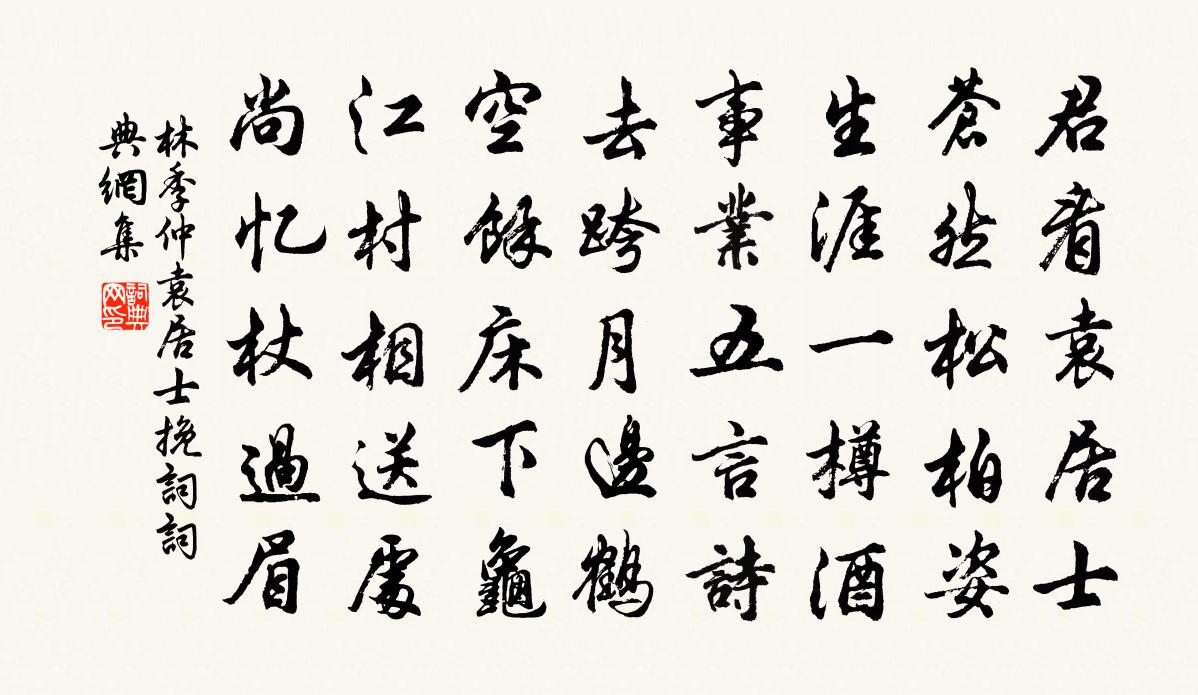 君看袁居士
蒼然松柏姿
生涯一樽酒
事業五言詩
去跨月邊鶴
空餘床下龜
江村相送處
尚忆杖過眉
林季仲袁居士挽詞詞
典網集
詞典網印